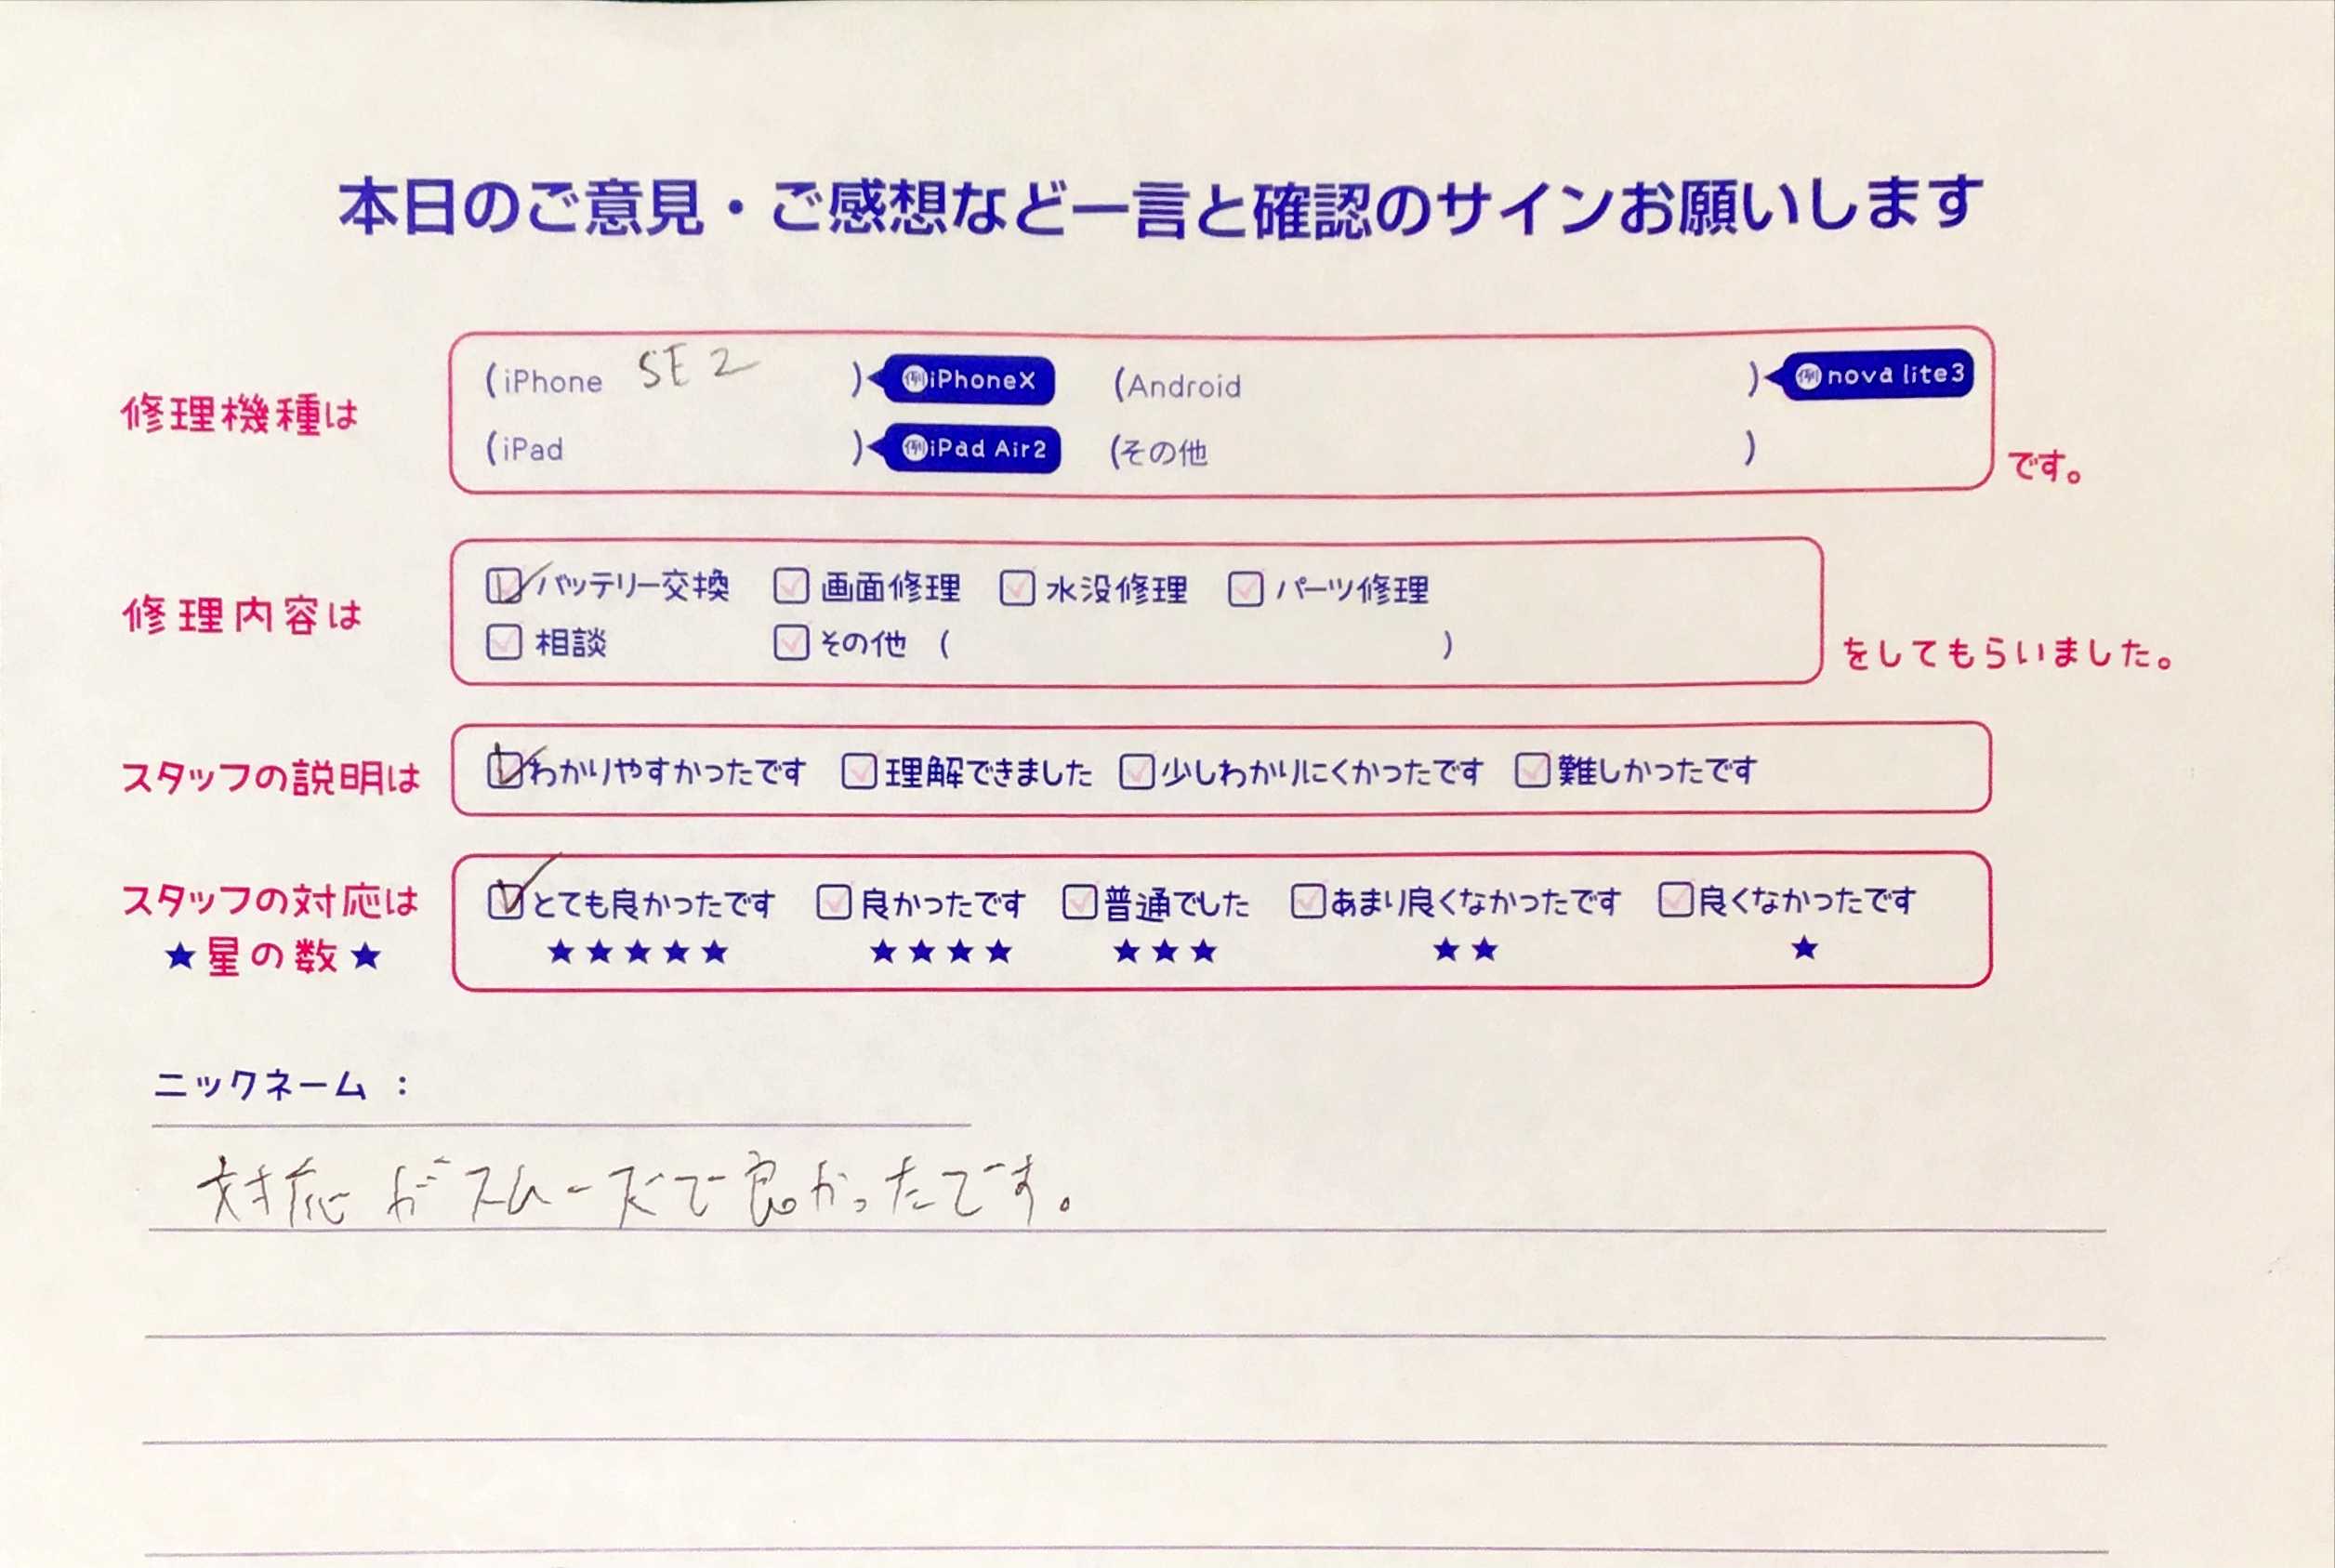 本日のご意見・ご感想など一言と確認のサインお願いします
修理機種は
(iPhone SE2 ) 例iPhoneX (Android ) 例nova lite3
(iPad ) 例iPad Air2 (その他 ) です。
修理内容は
バッテリー交換 画面修理 水没修理 パーツ修理
相談 その他 ( ) をしてもらいました。
スタッフの説明は わかりやすかったです 理解できました 少しわかりにくかったです 難しかったです
スタッフの対応は とても良かったです 良かったです 普通でした あまり良くなかったです 良くなかったです
★星の数★ ★★★★★ ★★★★ ★★★ ★★ ★
ニックネーム :
対応がスムーズで良かったです。